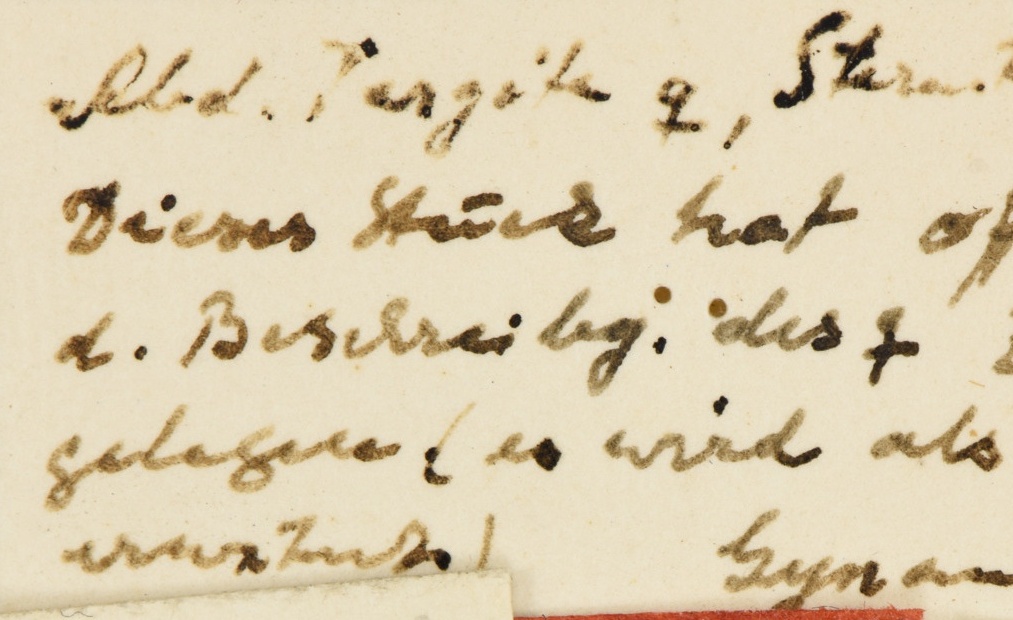 Abd. Tergite ♀, Stern
Dieses Stück hat of
d. Beschreibg. des ♀
gelegen (es wird als
erwähnt)   Gynan